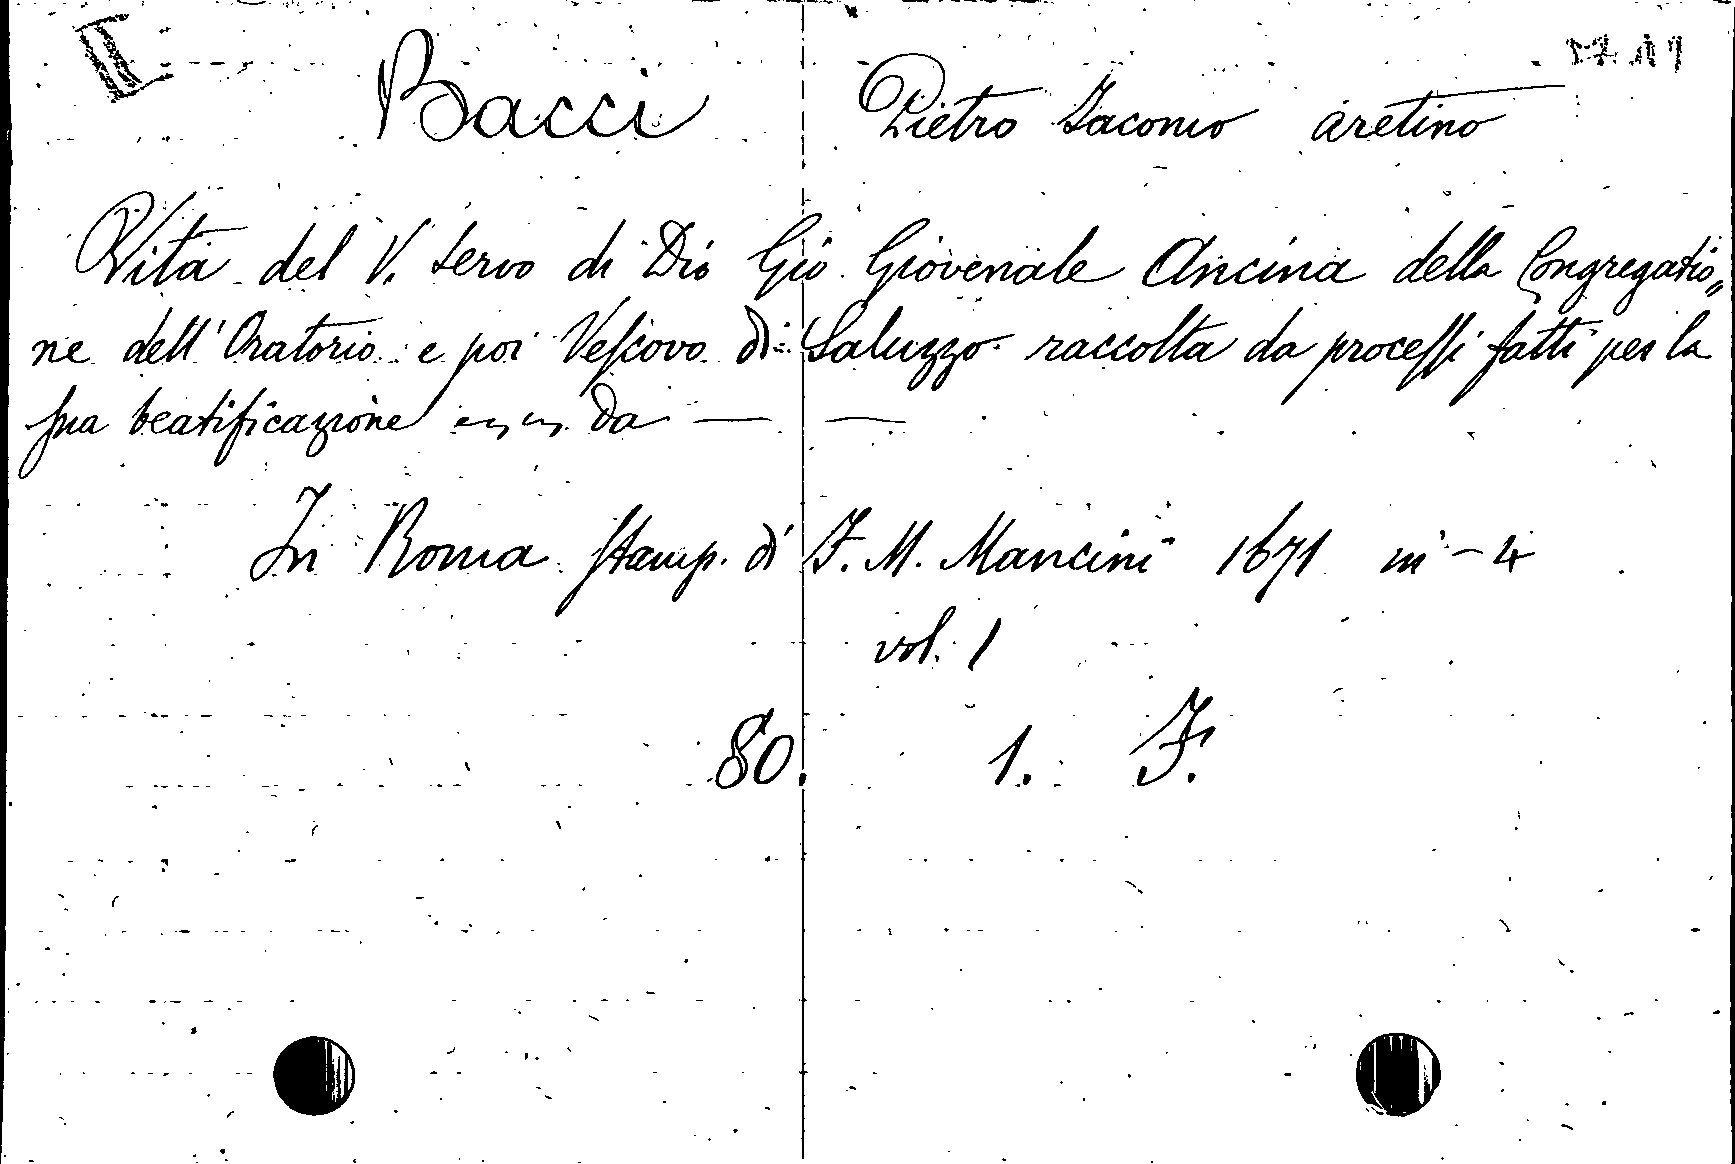 II
Bacci Pietro Iacomo aretino
Vita del V. Servo di Dio Gio Giovenale Ancina della Congregatio„
ne dell'Oratorio e poi Veſcovo di Saluzzo raccolta da proceſſi fatti per la
ſua beatificazione da —— ——
In Roma ſtamp. di F. M. Mancini 1671 in-4
vol. 1
80. 1. F.